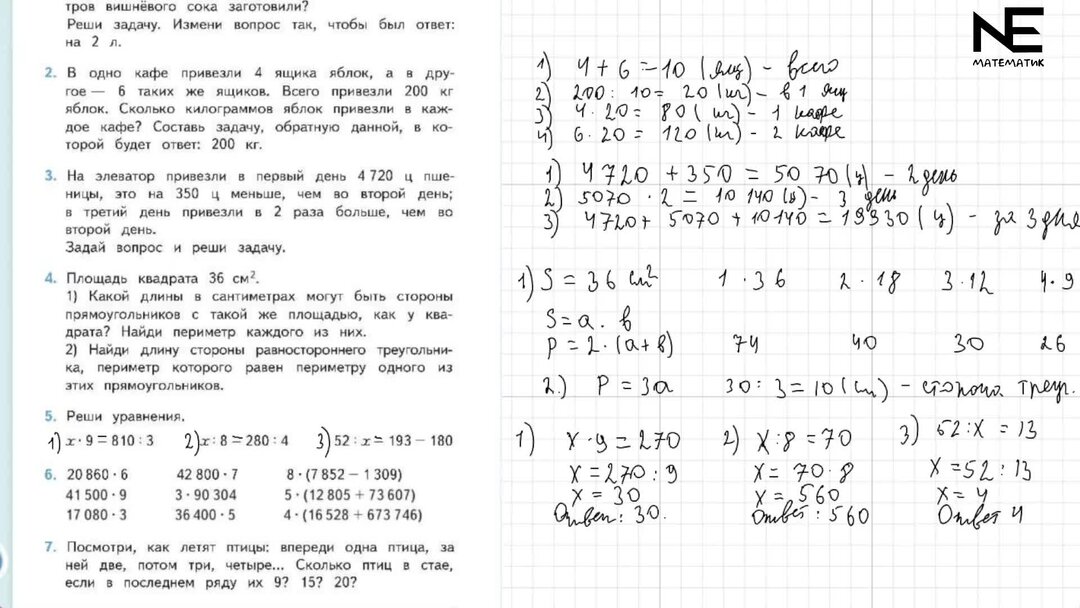 тров вишнёвого сока заготовили?
Реши задачу. Измени вопрос так, чтобы был ответ:
на 2 л.
2. В одно кафе привезли 4 ящика яблок, а в дру-
гое — 6 таких же ящиков. Всего привезли 200 кг
яблок. Сколько килограммов яблок привезли в каж-
дое кафе? Составь задачу, обратную данной, в ко-
торой будет ответ: 200 кг.
3. На элеватор привезли в первый день 4 720 ц пше-
ницы, это на 350 ц меньше, чем во второй день;
в третий день привезли в 2 раза больше, чем во
второй день.
Задай вопрос и реши задачу.
4. Площадь квадрата 36 см².
1) Какой длины в сантиметрах могут быть стороны
прямоугольников с такой же площадью, как у ква-
драта? Найди периметр каждого из них.
2) Найди длину стороны равностороннего треугольни-
ка, периметр которого равен периметру одного из
этих прямоугольников.
5. Реши уравнения.
1) x · 9 = 810 : 3 2) x : 8 = 280 : 4 3) 52 : x = 193 − 180
6. 20 860 · 6 42 800 · 7 8 · (7 852 − 1 309)
41 500 · 9 3 · 90 304 5 · (12 805 + 73 607)
17 080 · 3 36 400 · 5 4 · (16 528 + 673 746)
7. Посмотри, как летят птицы: впереди одна птица, за
ней две, потом три, четыре... Сколько птиц в стае,
если в последнем ряду их 9? 15? 20?
NE
МАТЕМАТИК
1) 4 + 6 = 10 (ящ) - всего
2) 200 : 10 = 20 (кг) - в 1 ящ
3) 4 · 20 = 80 (кг) - 1 кафе
4) 6 · 20 = 120 (кг) - 2 кафе
1) 4720 + 350 = 5070 (ц) - 2 день
2) 5070 · 2 = 10 140 (ц) - 3 день
3) 4720 + 5070 + 10140 = 19930 (ц) - за 3 дня
1) S = 36 см² 1 · 36 2 · 18 3 · 12 4 · 9
S = a · в
P = 2 · (a + в) 74 40 30 26
2.) P = 3a 30 : 3 = 10 (см) - сторона треуг.
1) x · 9 = 270 2) x : 8 = 70 3) 52 : x = 13
x = 270 : 9 x = 70 · 8 x = 52 : 13
x = 30 x = 560 x = 4
Ответ : 30. Ответ : 560 Ответ 4